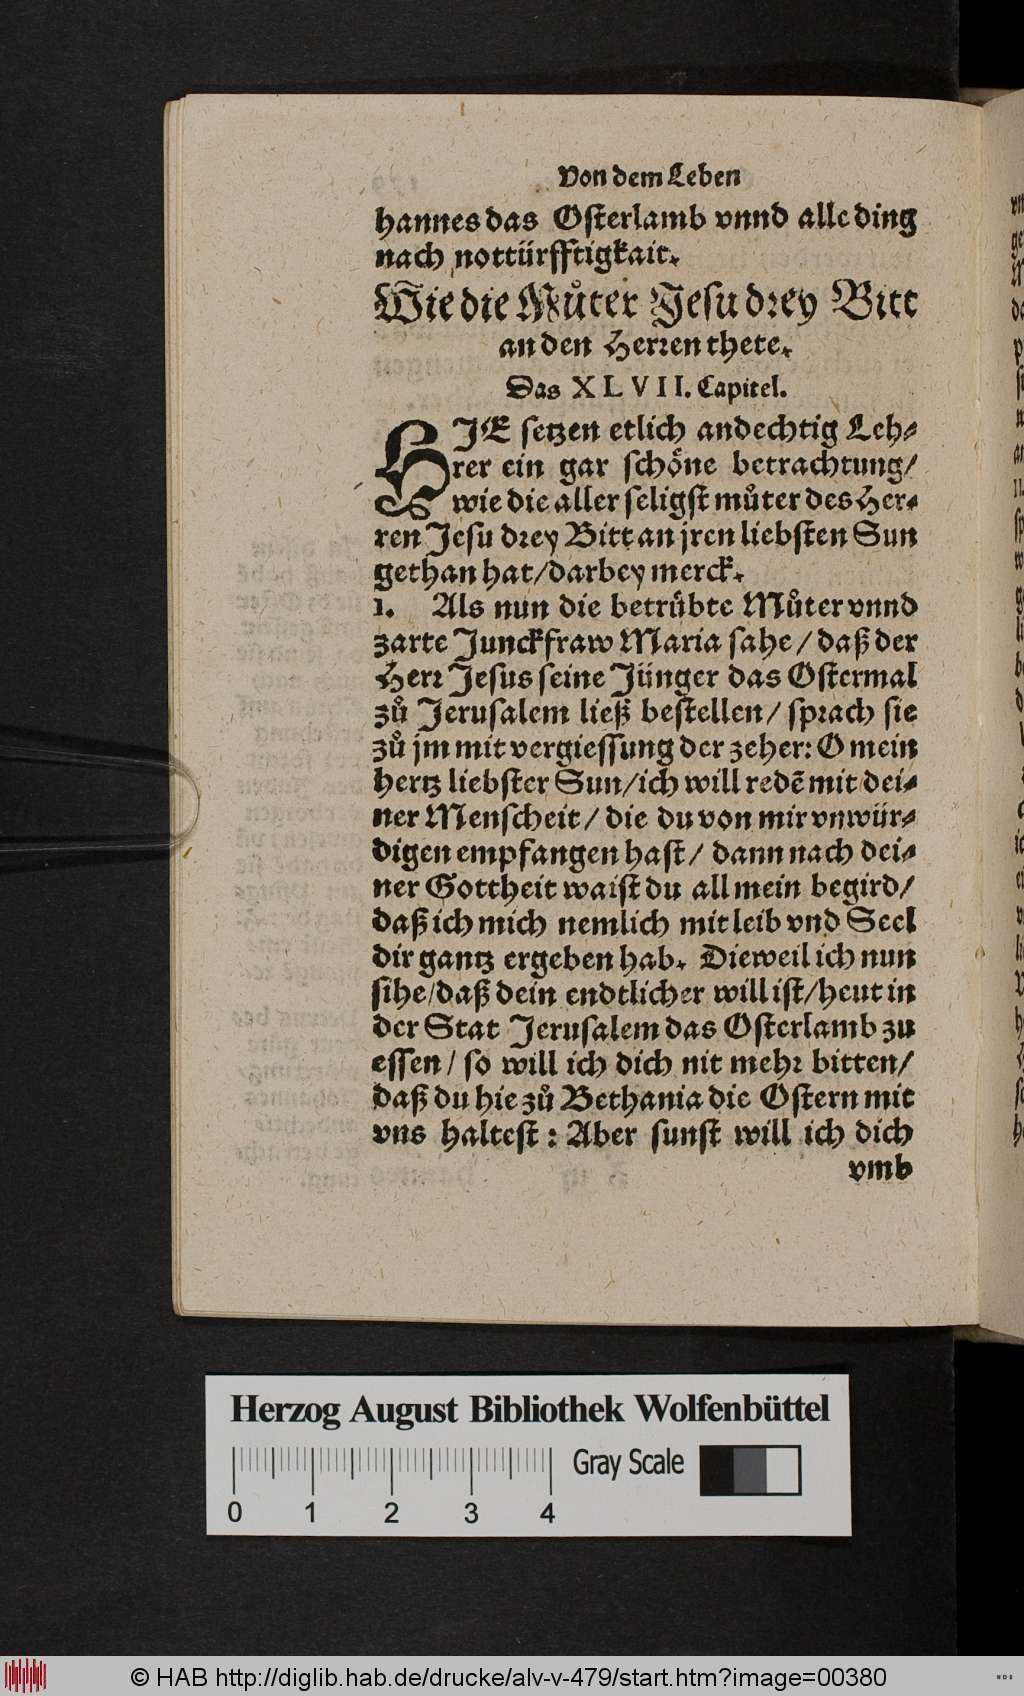 Von dem Leben
hannes das Osterlamb vnnd alle ding
nach nottürfftigkait.
Wie die Můter Jesu drey Bitt
an den Herren thete.
Das XLVII. Capitel.
HJE setzen etlich andechtig Leh-
rer ein gar schöne betrachtung/
wie die aller seligst můter des Her-
ren Jesu drey Bitt an jren liebsten Sun
gethan hat/darbey merck.
1. Als nun die betrübte Můter vnnd
zarte Junckfraw Maria sahe/ daß der
Herr Jesus seine Jünger das Ostermal
zů Jerusalem ließ bestellen/ sprach sie
zů jm mit vergiessung der zeher: O mein
hertz liebster Sun/ich will redẽ mit dei-
ner Menscheit/ die du von mir vnwür-
digen empfangen hast/ dann nach dei-
ner Gottheit waist du all mein begird/
daß ich mich nemlich mit leib vnd Seel
dir gantz ergeben hab. Dieweil ich nun
sihe/daß dein endtlicher will ist/heut in
der Stat Jerusalem das Osterlamb zu
essen/ so will ich dich nit mehr bitten/
daß du hie zů Bethania die Ostern mit
vns haltest: Aber sunst will ich dich
vmb
Herzog August Bibliothek Wolfenbüttel
Gray Scale
0 1 2 3 4
© HAB http://diglib.hab.de/drucke/alv-v-479/start.htm?image=00380